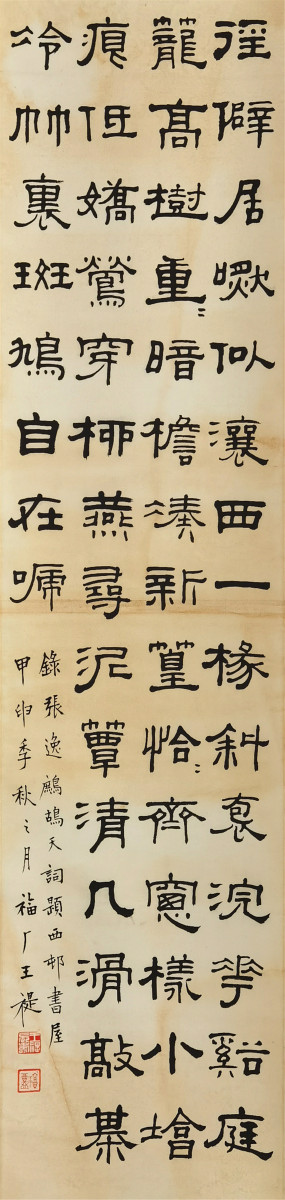 徑僻居似瀼西一椽斜裊浣花谿庭
籠高樹重〻暗檐湊新篁恰〻齊窻樣小墖
痕低嬌鶯穿柳燕尋泥簟清几滑敲棊
冷竹裏斑鳩自在啼
錄張逸鷓鴣天詞題西邨書屋
甲申季秋之月福厂王禔